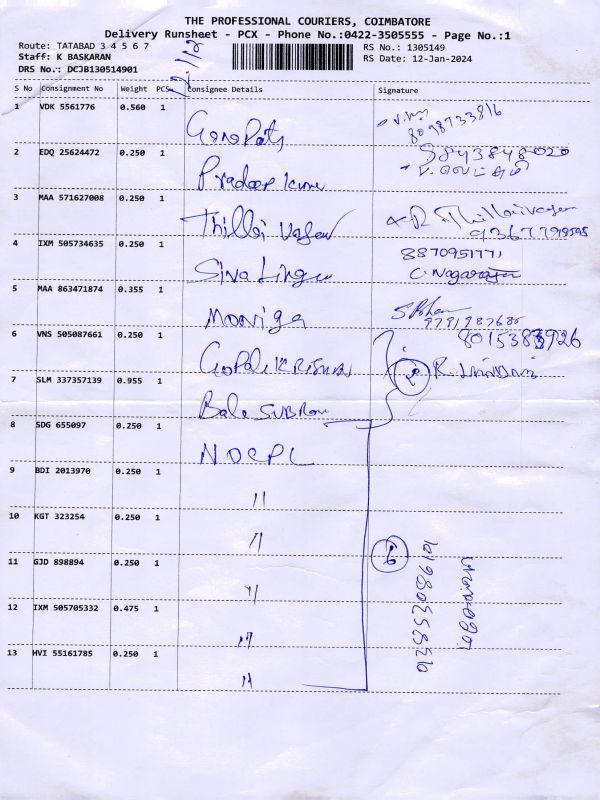 THE PROFESSIONAL COURIERS, COIMBATORE
Delivery Runsheet - PCX - Phone No.:0422-3505555 - Page No.:1
Route: TATABAD 3 4 5 6 7
RS No.: 1305149
Staff: K BASKARAN
RS Date: 12-Jan-2024
DRS No.: DCJB130514901
S No Consignment No Weight PCS Consignee Details Signature
1 VDK 5561776 0.560 1
8098733816
2 EDQ 25624472 0.250 1 Pradeep Kumar
3 MAA 571627008 0.250 1 Thillai
4 IXM 505734635 0.250 1 Siva Linga
8870951771
C. Nagarajan
5 MAA 863471874 0.355 1 Moniga
6 VNS 505087661 0.250 1
7 SLM 337357139 0.955 1 Bala
8 SDG 655097 0.250 1 NDCPL
9 BDI 2013970 0.250 1 "
10 KGT 323254 0.250 1 "
11 GJD 898894 0.250 1 "
12 IXM 505705332 0.475 1 "
13 HVI 55161785 0.250 1 "